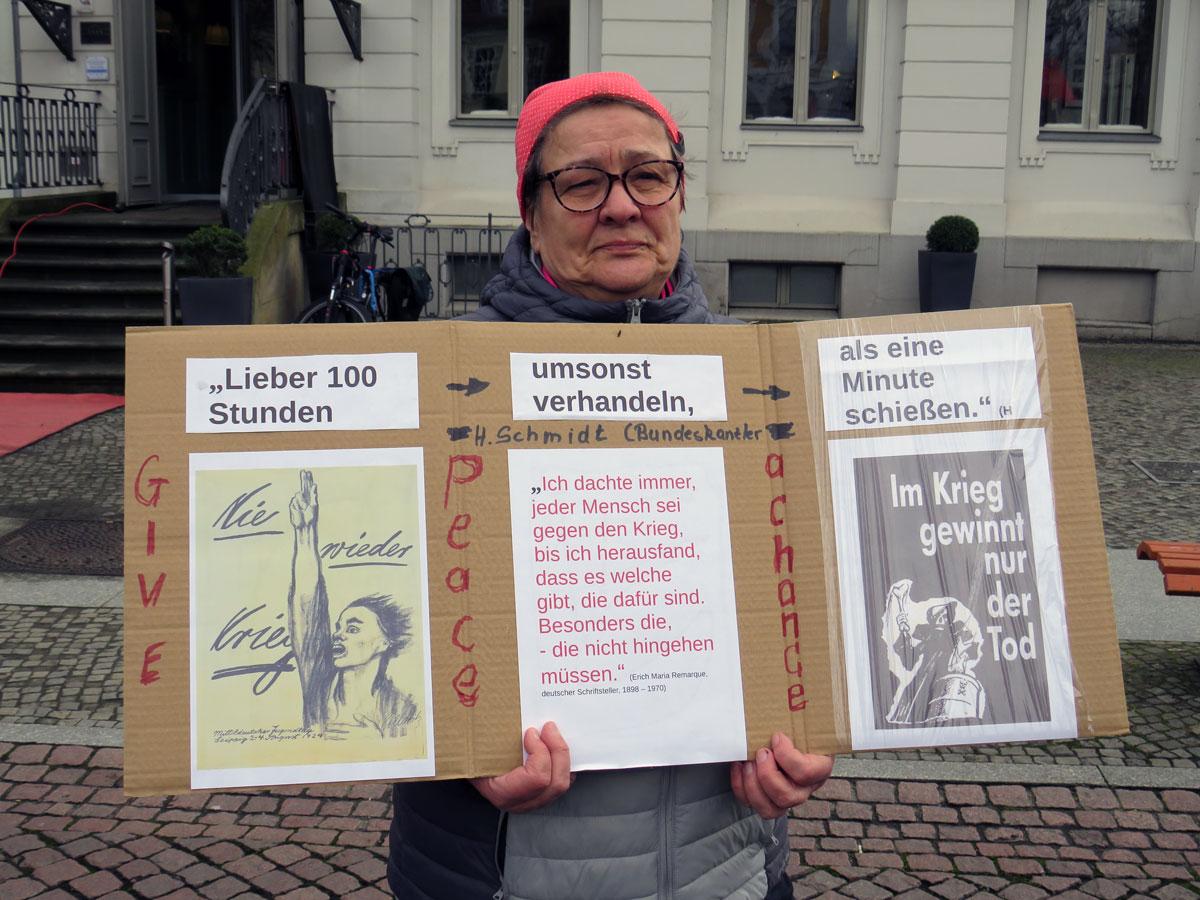 „Lieber 100
Stunden
umsonst
verhandeln,
als eine
Minute
schießen.“ (H
H. Schmidt (Bundeskantler
GIVE
peace
achance
Nie
wieder
Krieg
Mitteldeutscher Jugendtag
Leipzig 2-4. August 1924
„Ich dachte immer,
jeder Mensch sei
gegen den Krieg,
bis ich herausfand,
dass es welche
gibt, die dafür sind.
Besonders die,
- die nicht hingehen
müssen.“ (Erich Maria Remarque,
deutscher Schriftsteller, 1898 – 1970)
Im Krieg
gewinnt
nur
der
Tod